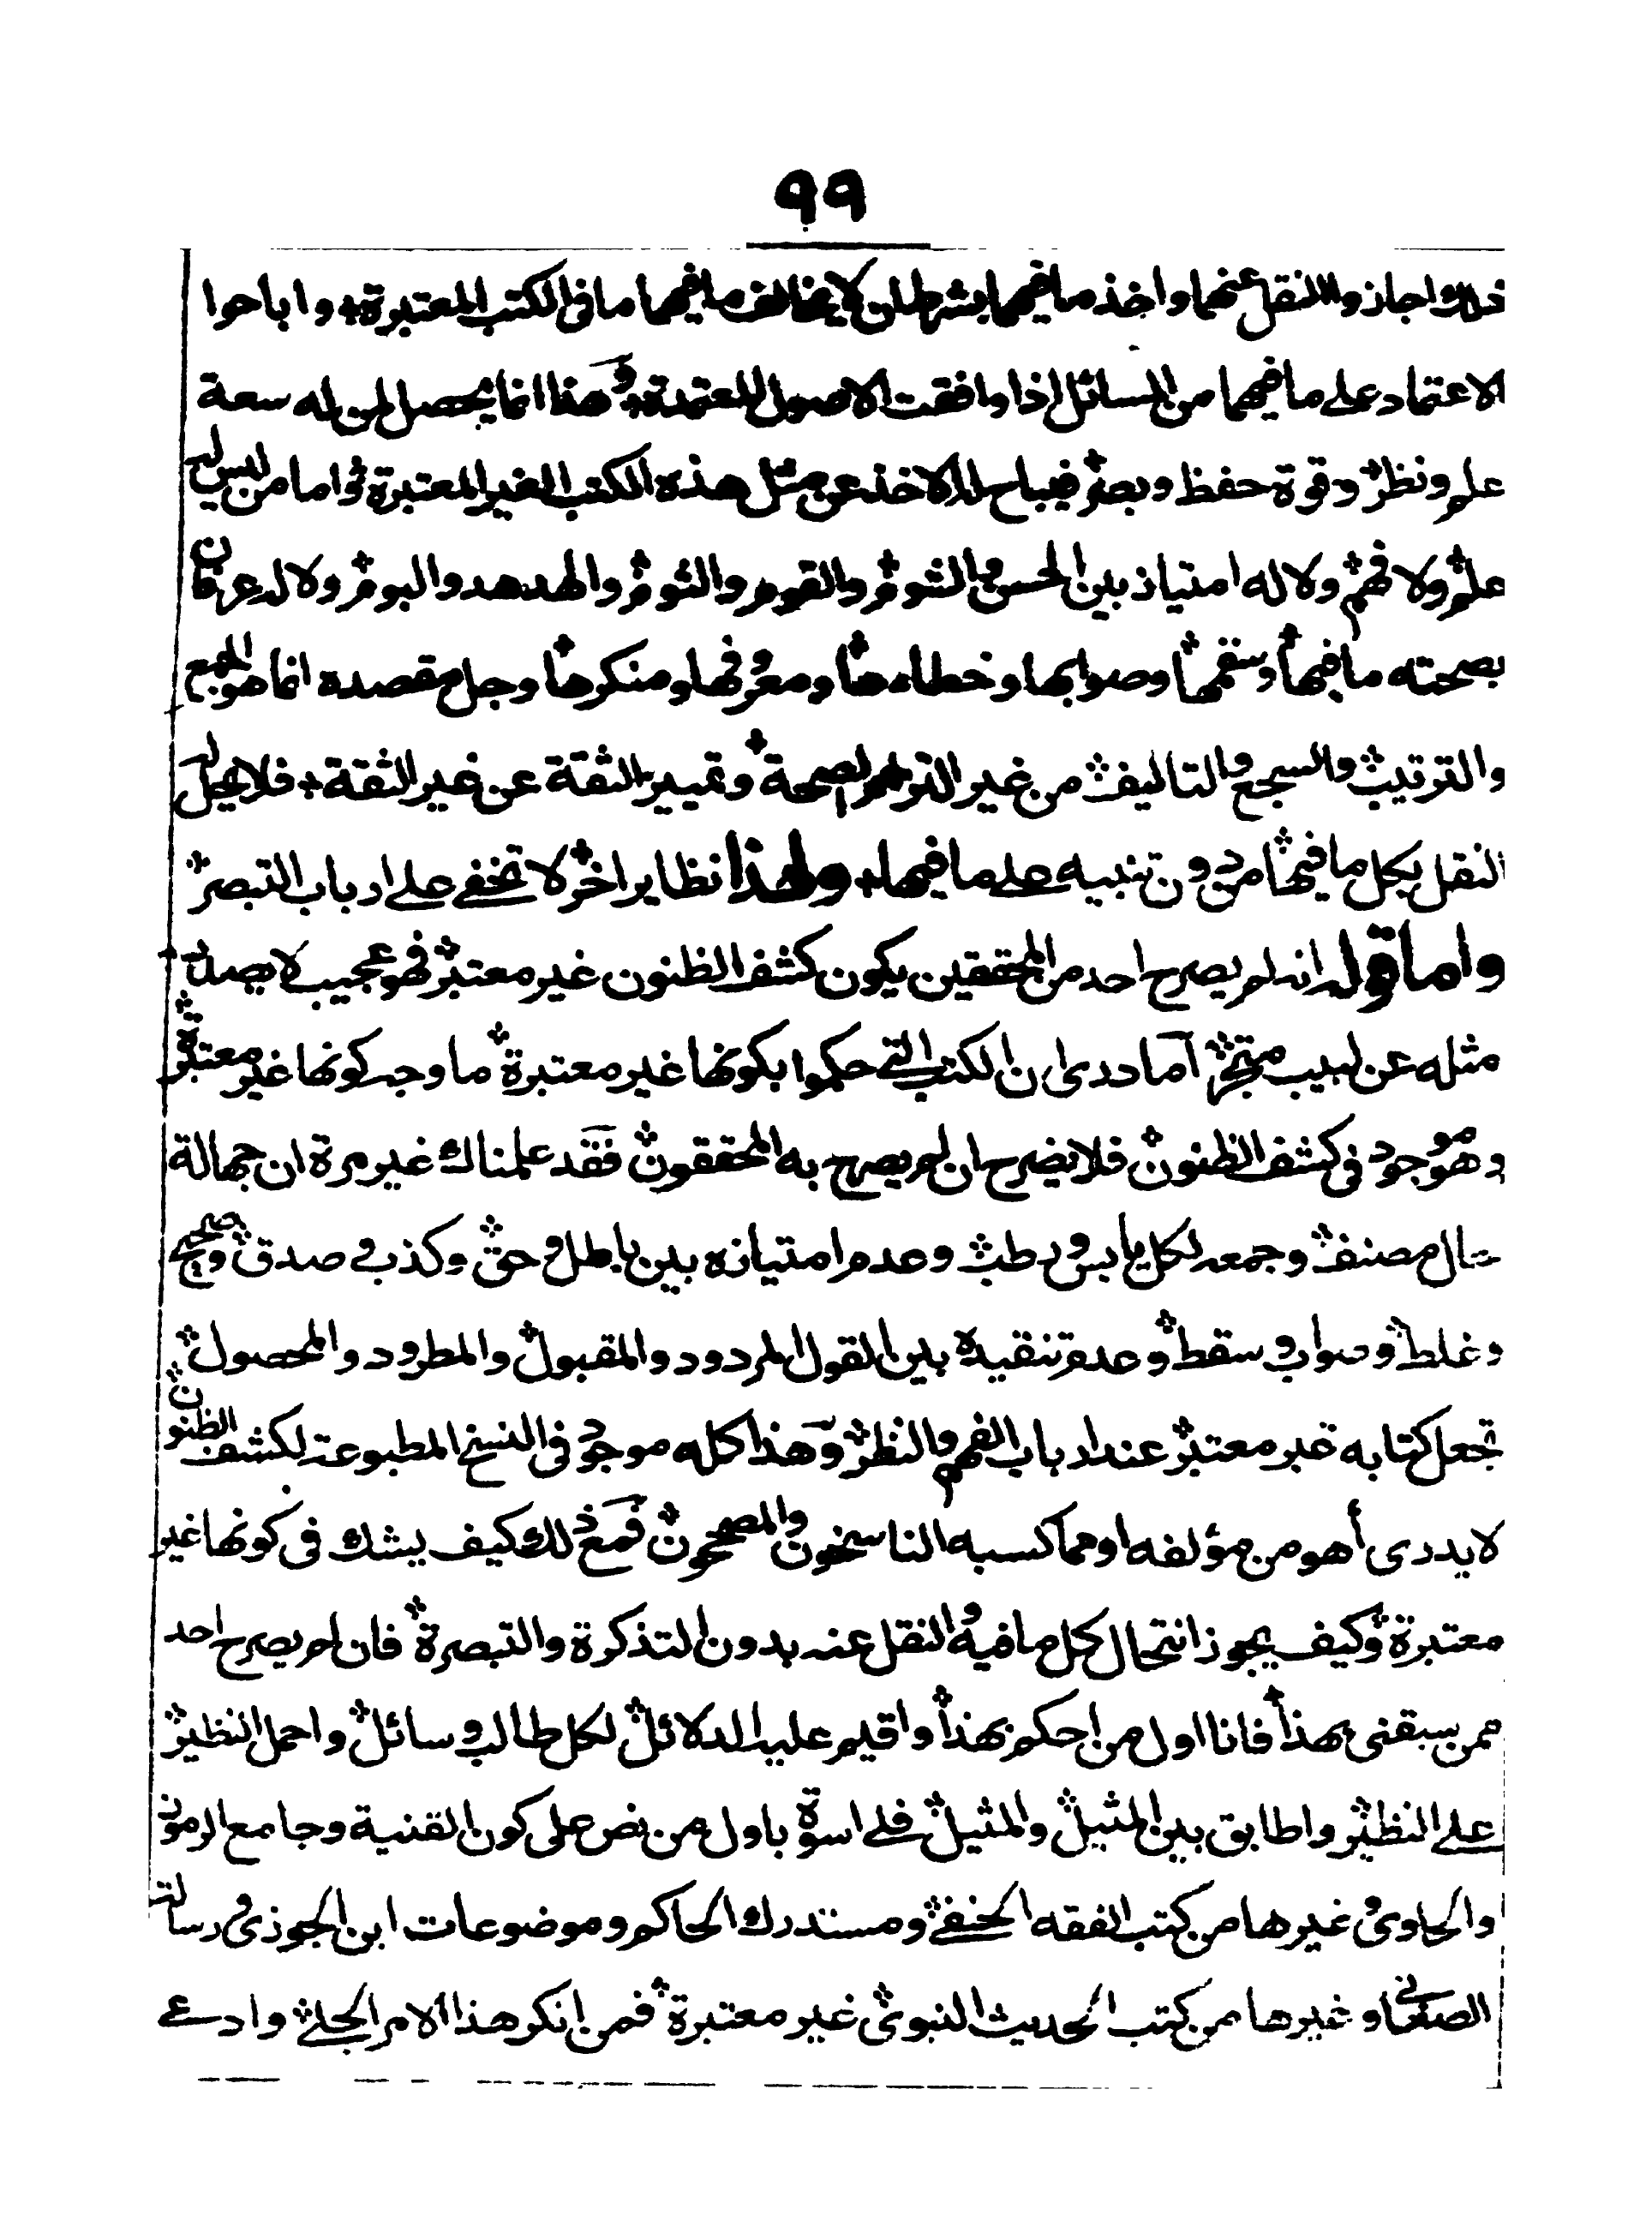 ٩٩
ذلك واجازوا النقل عنها واخذ ما فيها بشرط ان لا يخالف ما فيها ما فى الكتب المعتبرة؞ واباحوا
الاعتماد على ما فيها من المسائل اذا وافقت الاصول المعتمدة؞ وهذا انما يحصل لمن له سعة
علم ونظر؞ وقوة حفظ وبصر؞ فيباح له الاخذ عن مثل هذه الكتب الغير المعتبرة؞ واما من ليس له
علم؞ ولا فهم؞ ولا له امتياز بين الحسن والشوم؞ والقوم والثوم؞ والهدهد والبوم؞ ولا له عرفان
بصحته ما فيها؞ وسقمها؞ وصوابها وخطاءها؞ ومعروفها ومنكرها؞ وجل مقصده انما هو الجمع
والترتيب؞ والسجع والتاليف؞ من غير التزام الصحة؞ وتمييز الثقة عن غير الثقة؞ فلا يحل له
النقل بكل ما فيها؞ من دون تنبيه على ما فيها؞ ولهذا نظاير اخر؞ لا تخفى على ارباب التبصر؞
واما قوله انه لم يصرح احد من المحققين بكون كشف الظنون غير معتبر؞ فهو عجيب لا يصدر
مثله عن لبيب متبحر؞ آما درى ان الكتب التى حكموا بكونها غير معتبرة؞ ما وجه كونها غير معتبرة؞
وهو موجود فى كشف الظنون؞ فلا يضر ح ان لم يصرح به المحققون؞ فقد علمناك غير مرة ان جهالة
حال مصنف؞ وجمعه لكل يابس ورطب؞ وعدم امتيازه بين باطل وحق؞ وكذب وصدق؞ وصحيح
وغلط؞ وصواب وسقط؞ وعدم تنقيده بين القول المردود والمقبول؞ والمطرود والمحصول؞
تجعل كتابه غير معتبر؞ عند ارباب الفهم والنظر؞ وهذا كله موجود فى النسخ المطبوعة لكشف الظنون؞
لا يدرى أهو من مؤلفه او مما كسبه الناسخون والمصححون؞ فمع ذلك كيف يشك فى كونها غير
معتبرة؞ وكيف يجوز انتحال كل ما فيه والنقل عنه بدون التذكرة والتبصرة؞ فان لم يصرح احد
ممن سبقنى بهذا؞ فانا اول من احكم بهذا؞ واقيم عليه الدلائل؞ لكل طالب وسائل؞ واحمل النظير؞
على النظير؞ واطابق بين المثيل؞ والمثيل؞ فلى اسوة باول من نص على كون القنية وجامع الرموز
والحاوى وغيرها من كتب الفقه الحنفى؞ ومستدرك الحاكم وموضوعات ابن الجوزى ورسالة
الصغانى وغيرها من كتب الحديث النبوى؞ غير معتبرة؞ فمن انكر هذا الامر الجلى؞ وادعى